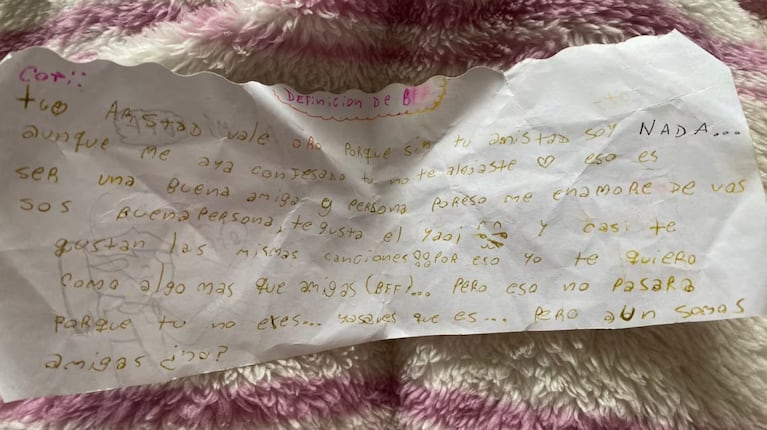 Cori::
Definicion De BFF
tu AMISTAD vale oRo PorQue sin tu amistad soy NADA...
aunque me aya confesado tu no te alejaste ♡ eso es
seR una Buena amiga y peRsona PoReso me enamoRe De vos
sos BuenaPeRsona, te gusta el yaoi y casi te
gustan las mismas canciones PoR eso yo te quieRo
como algo mas que amigas (BFF)... PeRo eso no PasaRa
PoRque tu no eRes... yasaves que es... PeRo aUn somos
amigas ¿no?